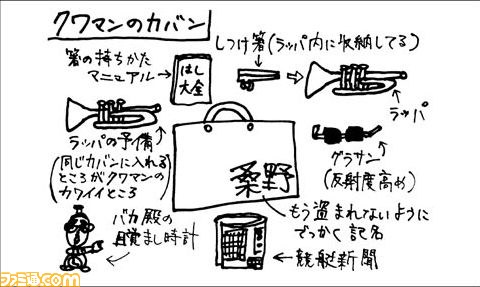 クワマンのカバン
箸の持ちかた
マニュアル
はし
大全
しつけ箸(ラッパ内に収納してる)
ラッパ
ラッパの予備
(同じカバンに入れる
ところがクワマンの
カワイイところ)
桑野
グラサン
(反射度高め)
もう盗まれないように
でっかく記名
バカ殿の
目覚まし時計
競艇新聞
ファミ通.com